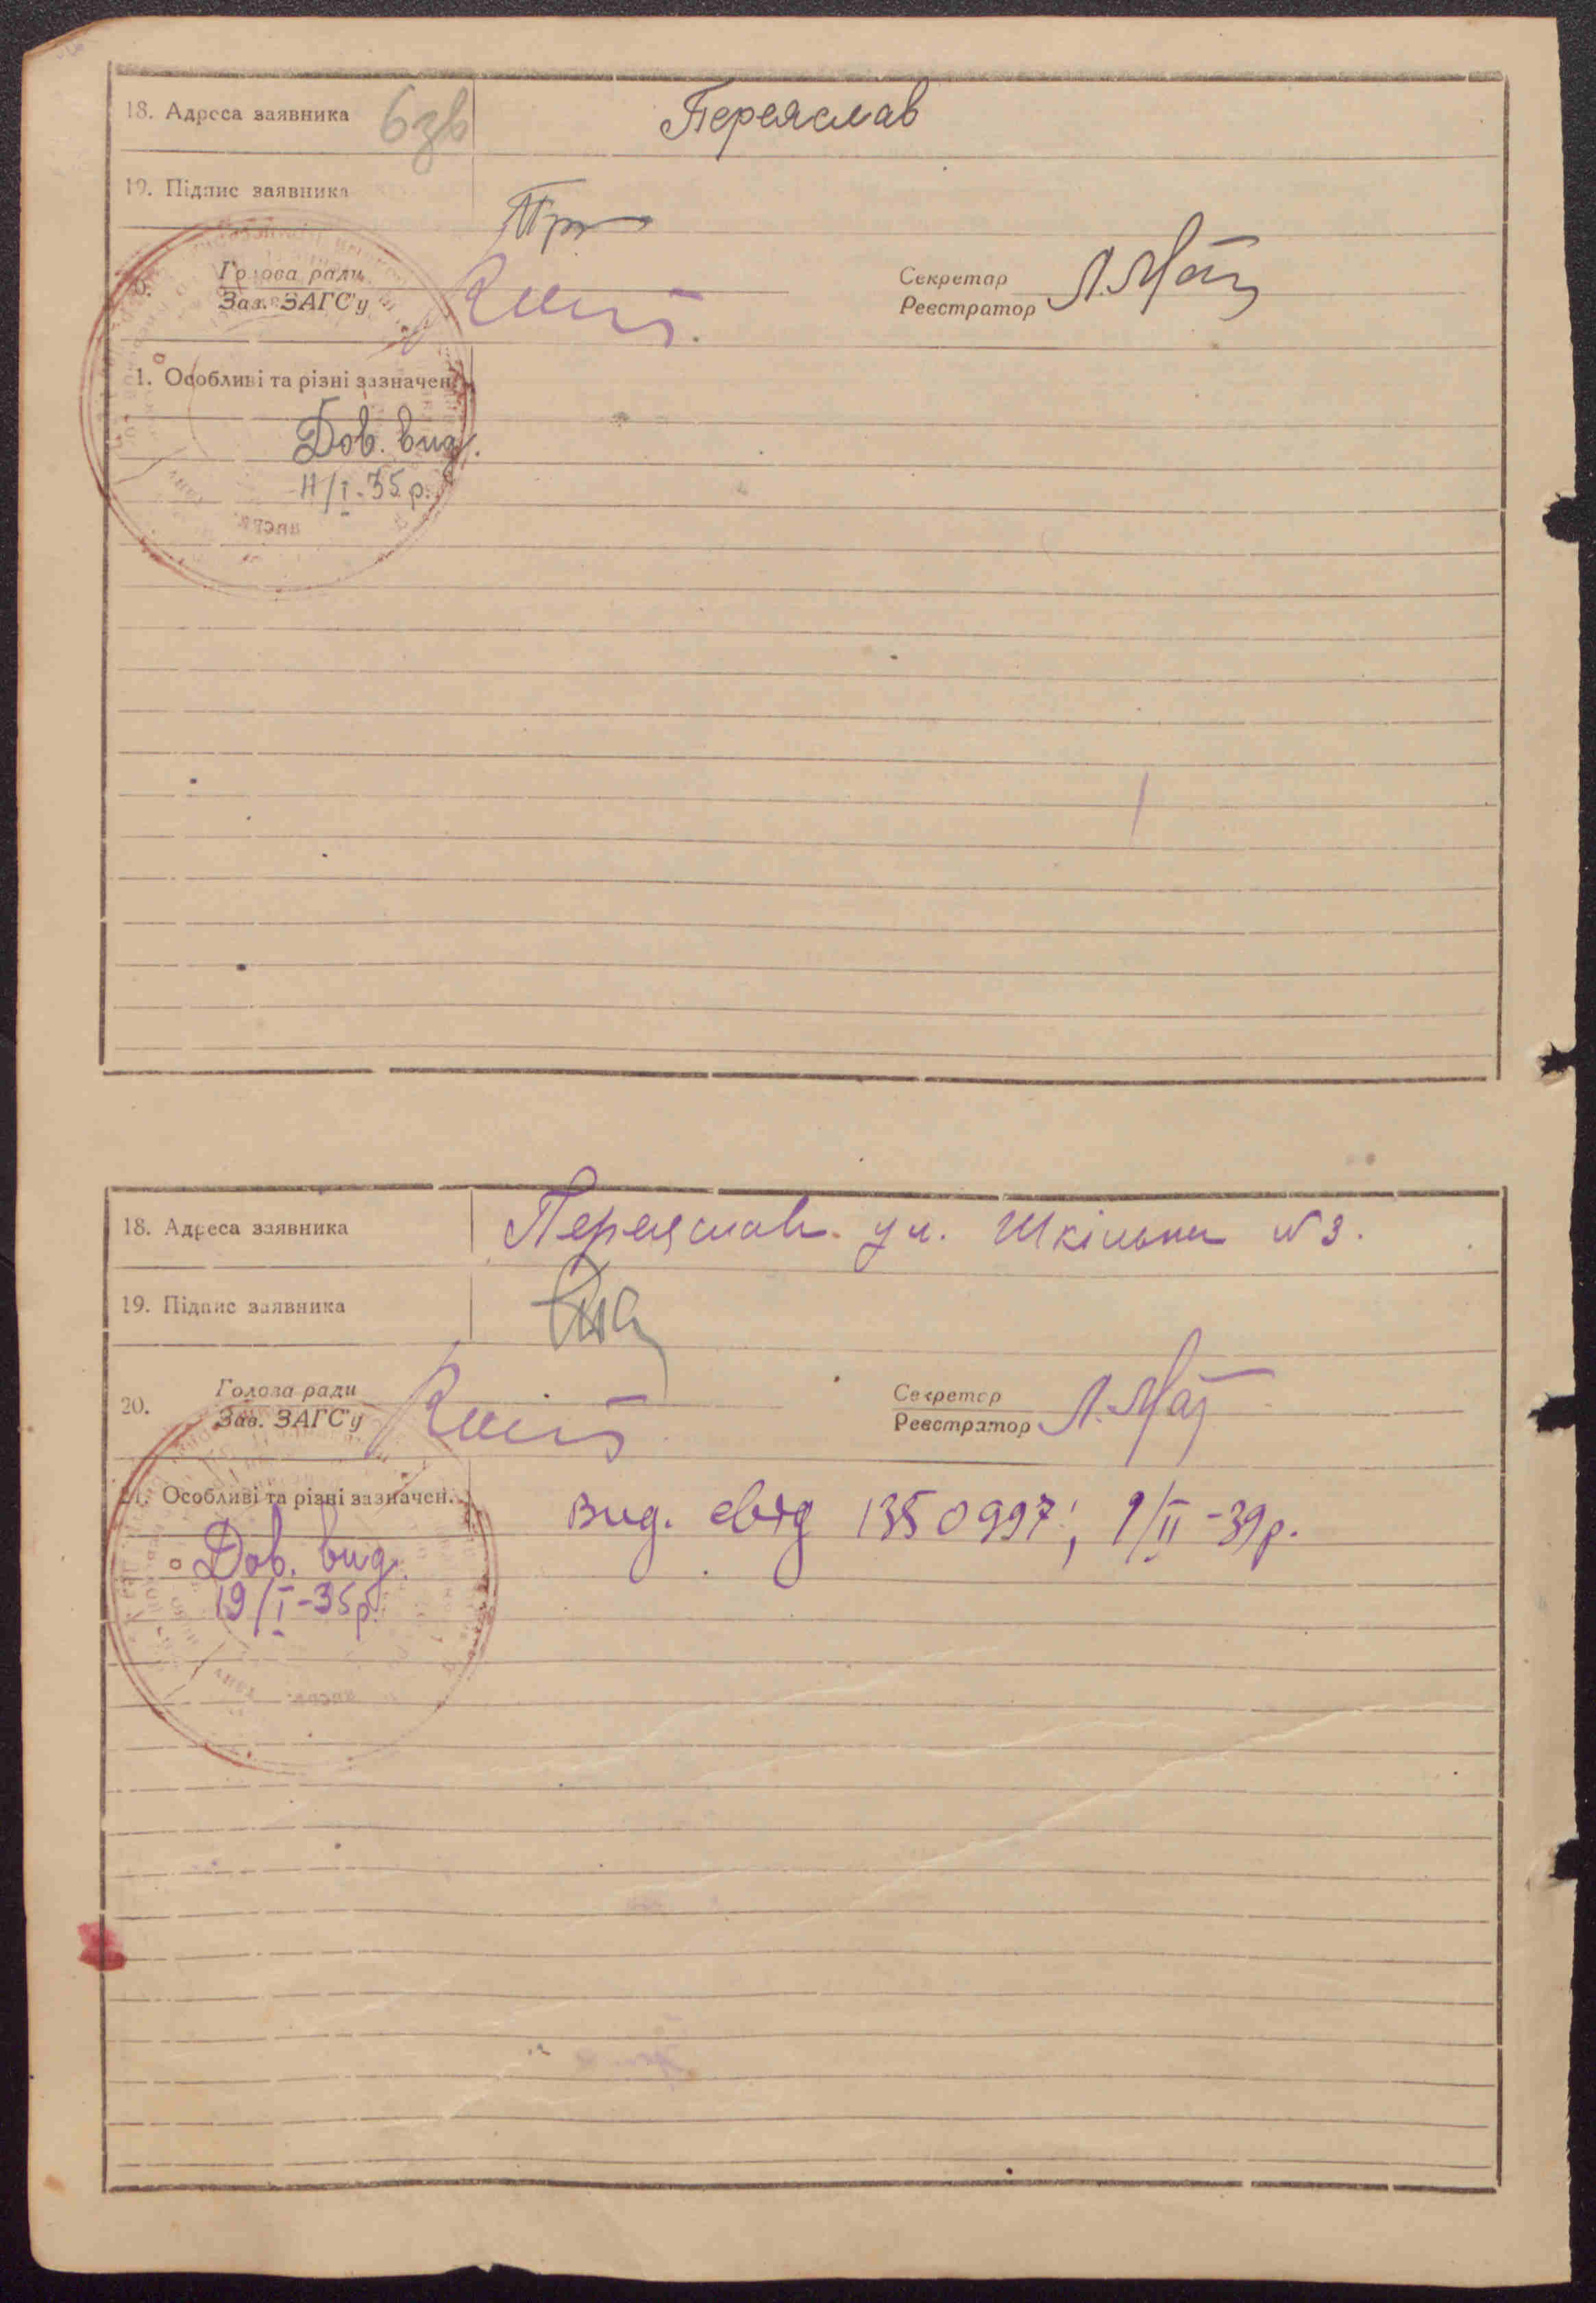 18. Адреса заявника 6зв Переяслав
19. Підпис заявника
Голова ради
Зав. ЗАГС'у
Секретар
Реєстратор
1. Особливі та різні зазначен.
Дов. вид.
11/I-35 р.
18. Адреса заявника Переяслав ул. Шкільна № 3.
19. Підпис заявника
20. Голова ради
Зав. ЗАГС'у
Секретар
Реєстратор
21. Особливі та різні зазначен. Вид. свід 1350997; 9/II-39р.
Дов. вид.
19/I-35р.